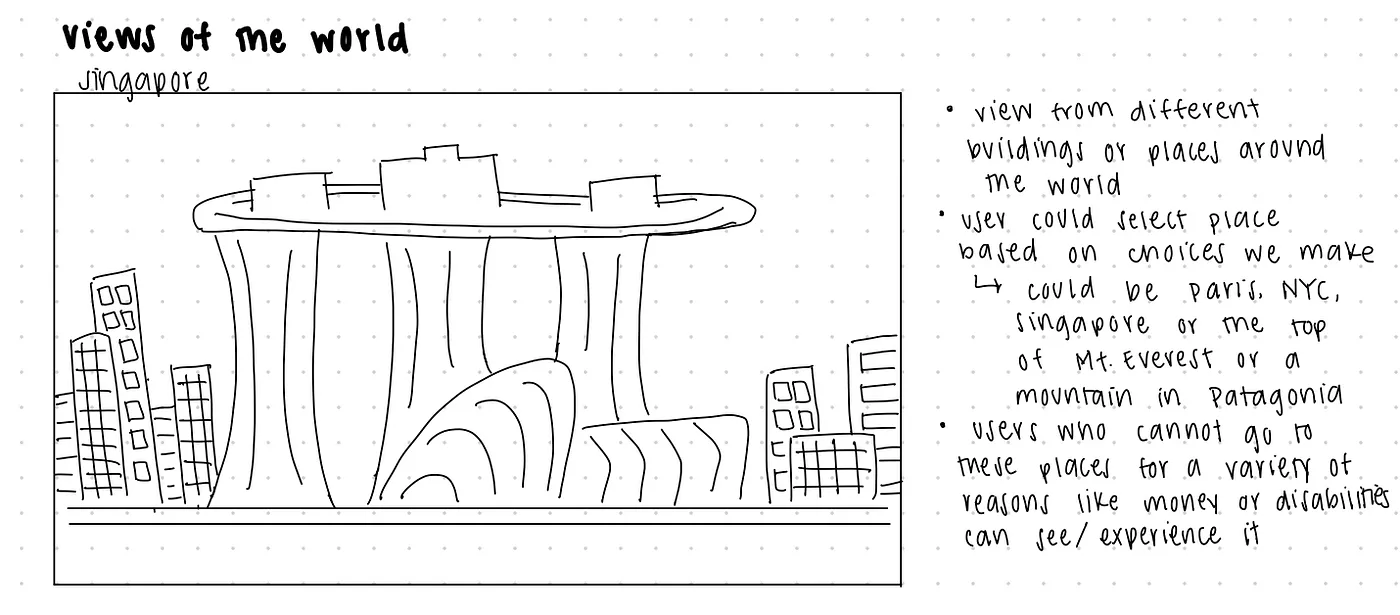 views of the world
singapore
• view from different
buildings or places around
the world
• user could select place
based on choices we make
↳ could be paris, NYC,
singapore or the top
of Mt. Everest or a
mountain in Patagonia
• users who cannot go to
these places for a variety of
reasons like money or disabilities
can see/experience it